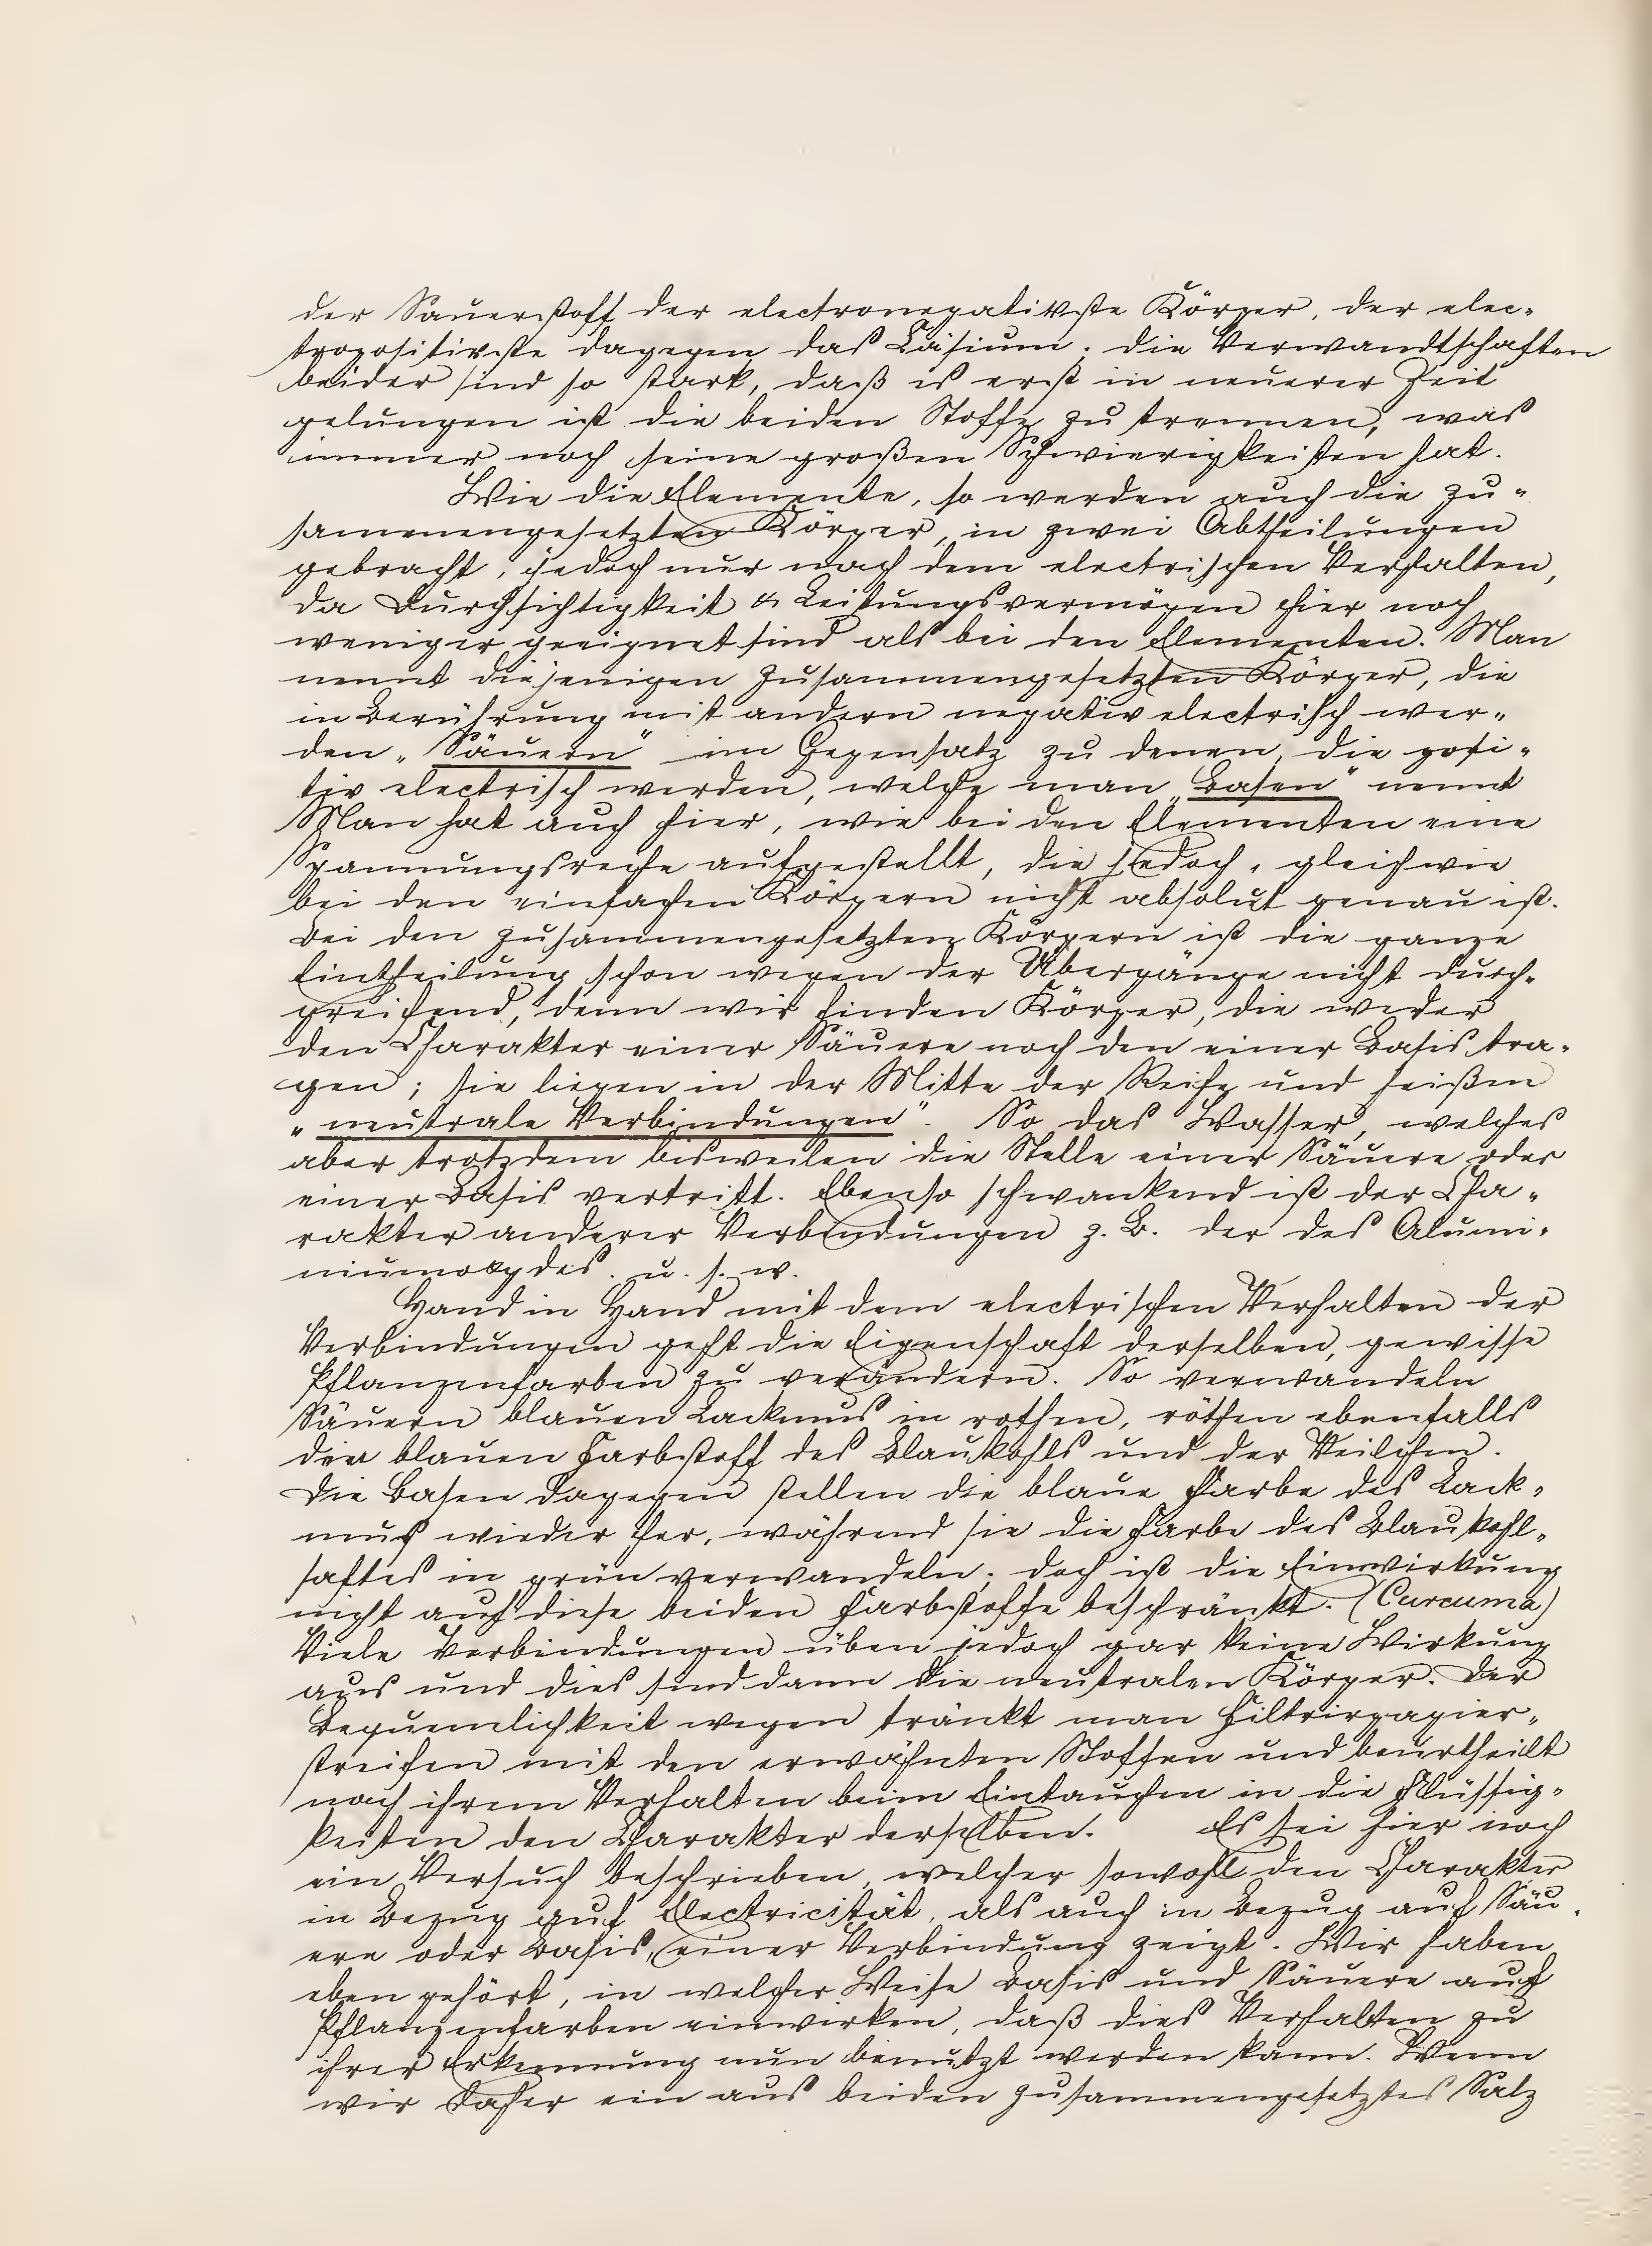 der Sauerstoff der electronegativste Körper, der elec-
tropositivste dagegen das Cäsium; die Verwandtschaften
beider sind so stark, daß es erst in neuerer Zeit
gelungen ist die beiden Stoffe zu trennen, was
immer noch seine großen Schwierigkeiten hat.
Wie die Elemente, so werden auch die zu-
sammengesetzten Körper, in zwei Abtheilungen
gebracht, jedoch nur nach dem electrischen Verhalten,
da Durchsichtigkeit & Leitungsvermögen hier noch
weniger geeignet sind als bei den Elementen. Man
nennt diejenigen zusammengesetzten Körper, die
in Berührung mit andern negativ electrisch wer-
den „Säuern" im Gegensatz zu denen, die posi-
tiv electrisch werden, welche man „Basen" nennt
Man hat auch hier, wie bei den Elementen eine
Spannungsreihe aufgestellt, die jedoch, gleichwie
bei den einfachen Körpern nicht absolut genau ist.
Bei den zusammengesetzten Körpern ist die ganze
Eintheilung schon wegen der Übergänge nicht durch-
greifend, denn wir finden Körper, die weder
den Charakter einer Säuere noch den einer Basis tra-
gen; sie liegen in der Mitte der Reihe und heißen
„neutrale Verbindungen". So das Wasser, welches
aber trotzdem bisweilen die Stelle einer Säuere oder
einer Basis vertritt. Ebenso schwankend ist der Cha-
rakter anderer Verbindungen z. B. der des Alumi-
niumoxydes. u. s. w.
Hand in Hand mit dem electrischen Verhalten der
Verbindungen geht die Eigenschaft derselben, gewisse
Pflanzenfarben zu verändern. So verwandeln
Säuern blauen Lackmus in rothen, röthen ebenfalls
den blauen Farbstoff des Blaukohls und der Veilchen.
Die Basen dagegen stellen die blaue Farbe des Lack-
mus wieder her, während sie die Farbe des Blaukohl-
saftes in grün verwandeln; doch ist die Einwirkung
nicht auf diese beiden Farbstoffe beschränkt. (Curcuma)
Viele Verbindungen üben jedoch gar keine Wirkung
aus und dies sind dann die neutralen Körper. Der
Bequemlichkeit wegen tränkt man Filtrirpapier-
streifen mit den erwähnten Stoffen und beurtheilt
nach ihrem Verhalten beim Eintauchen in die Flüssig-
keiten den Charakter derselben. Es sei hier noch
ein Versuch beschrieben, welcher sowohl den Charakter
in Bezug auf Electricität, als auch in Bezug auf Säu-
ere oder Basis, einer Verbindung zeigt. Wir haben
eben gehört, in welcher Weise Basis und Säuere auf
Pflanzenfarben einwirken, daß dies Verhalten zu
ihrer Erkennung nun benutzt werden kann. Wenn
wir daher ein aus beiden zusammengesetztes Salz